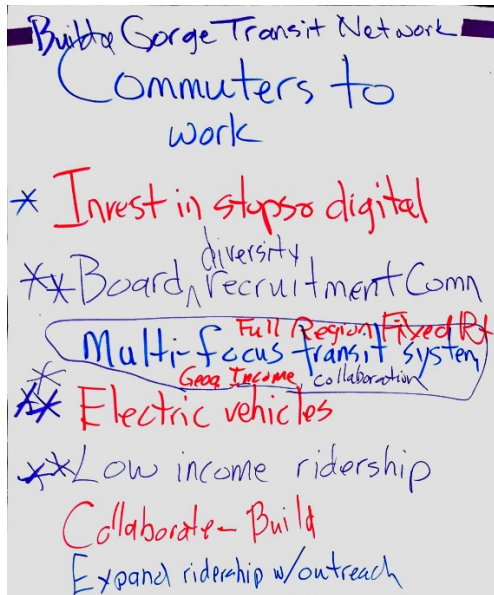 Build a Gorge Transit Network
Commuters to
work
* Invest in stops digital
diversity
** Board ^ recruitment Comm
Full Region Fixed Rt
Multi-focus transit system
Geog Income, collaboration
*** Electric vehicles
** Low income ridership
Collaborate - Build
Expand ridership w/outreach